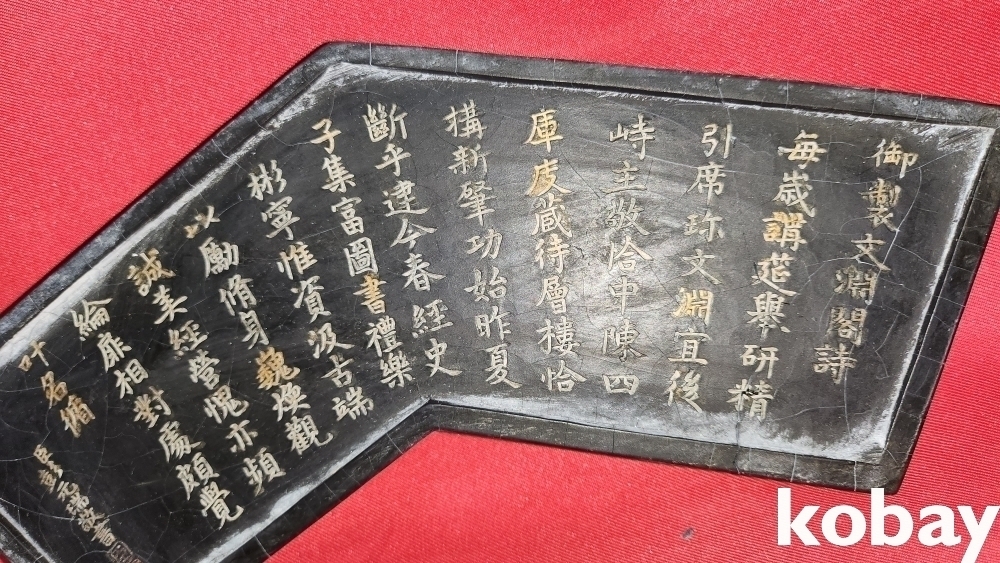 御製文淵閣詩
每歲講筵舉研精
引席珍文淵宜後
峙主敬恰中陳四
庫庋藏待層樓恰
搆新肇功始昨夏
斷乎建今春經史
子集富圖書禮樂
彬寧惟資汲古端
以勵脩身巍煥觀
誠美經營愧亦頻
綸扉相對處頗覺
叶名循
臣 敬書
kobay